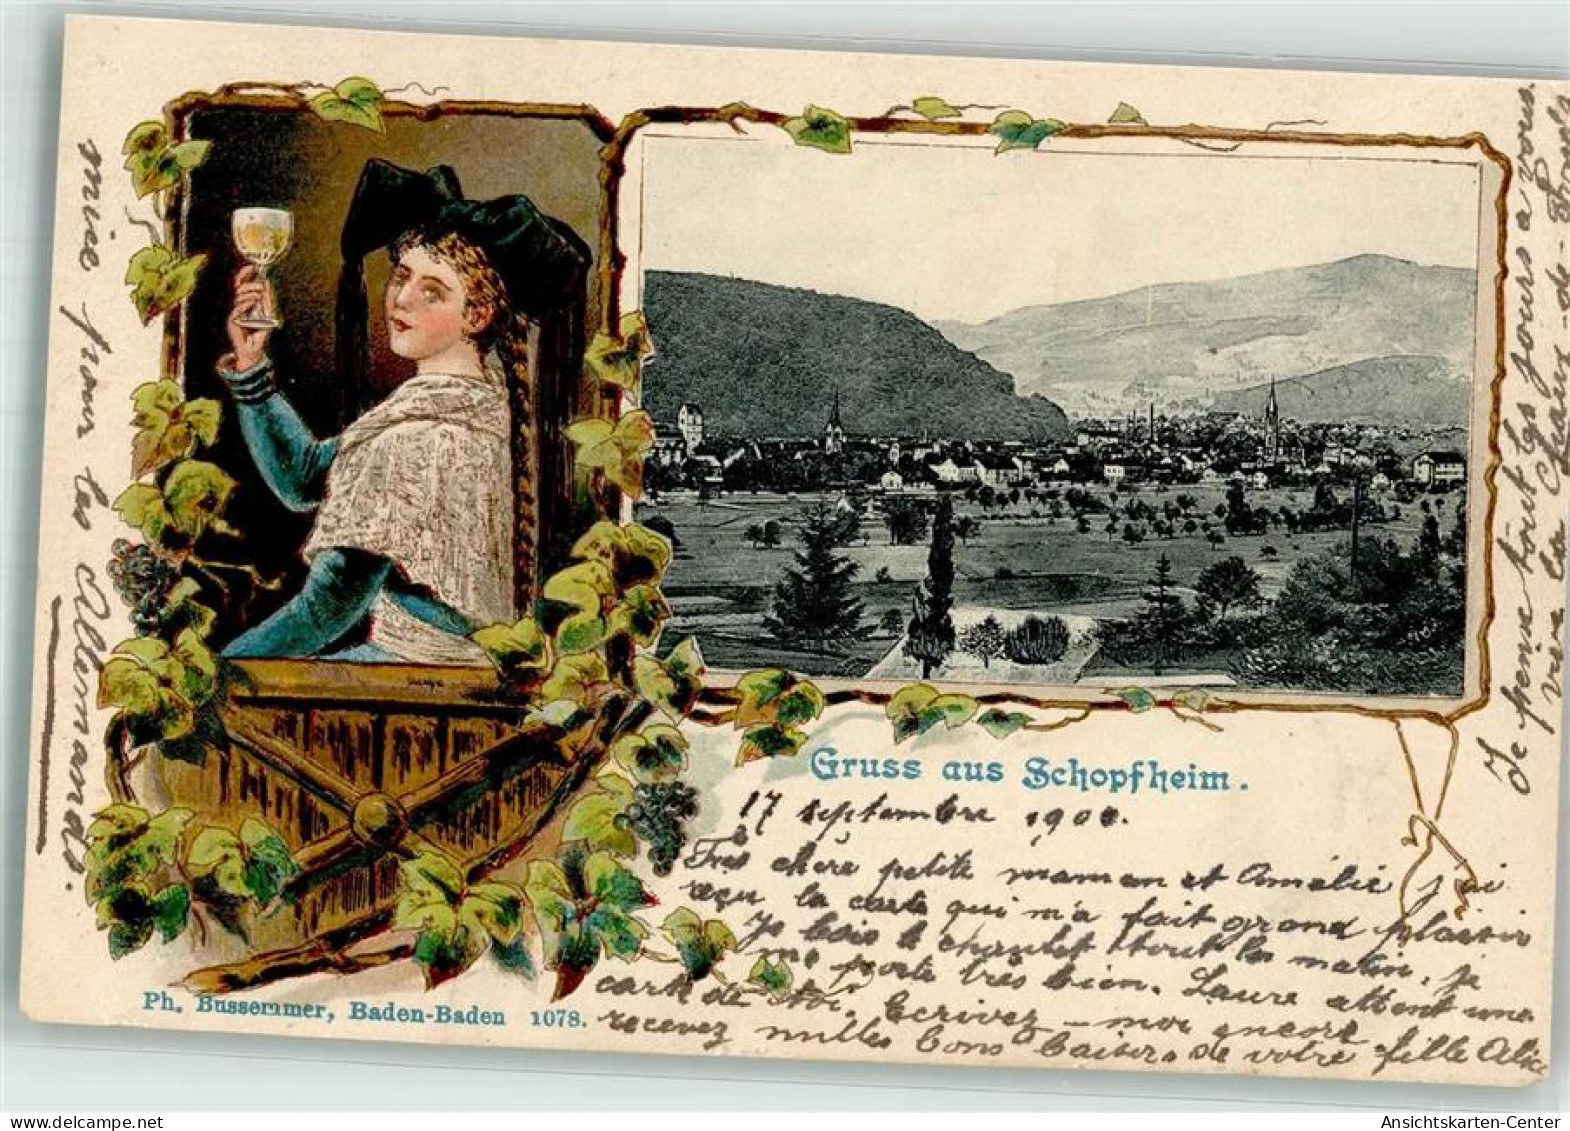 Gruss aus Schopfheim.
17 septembre 190
Très chère petite maman et Amélie j'ai
reçu la carte qui m'a fait grand plaisir
Je bois le chaudet tout les matin, je
me porte très bien. Laure attent une
carte de toi. Ecrivez-moi encore.
recevez milles bons baisers de votre fille Alice
Je pense tout les jours a vous.
la Chaux-de-Fonds
les Allemands.
Ph. Bussemmer, Baden-Baden 1078.
Ansichtskarten-Center